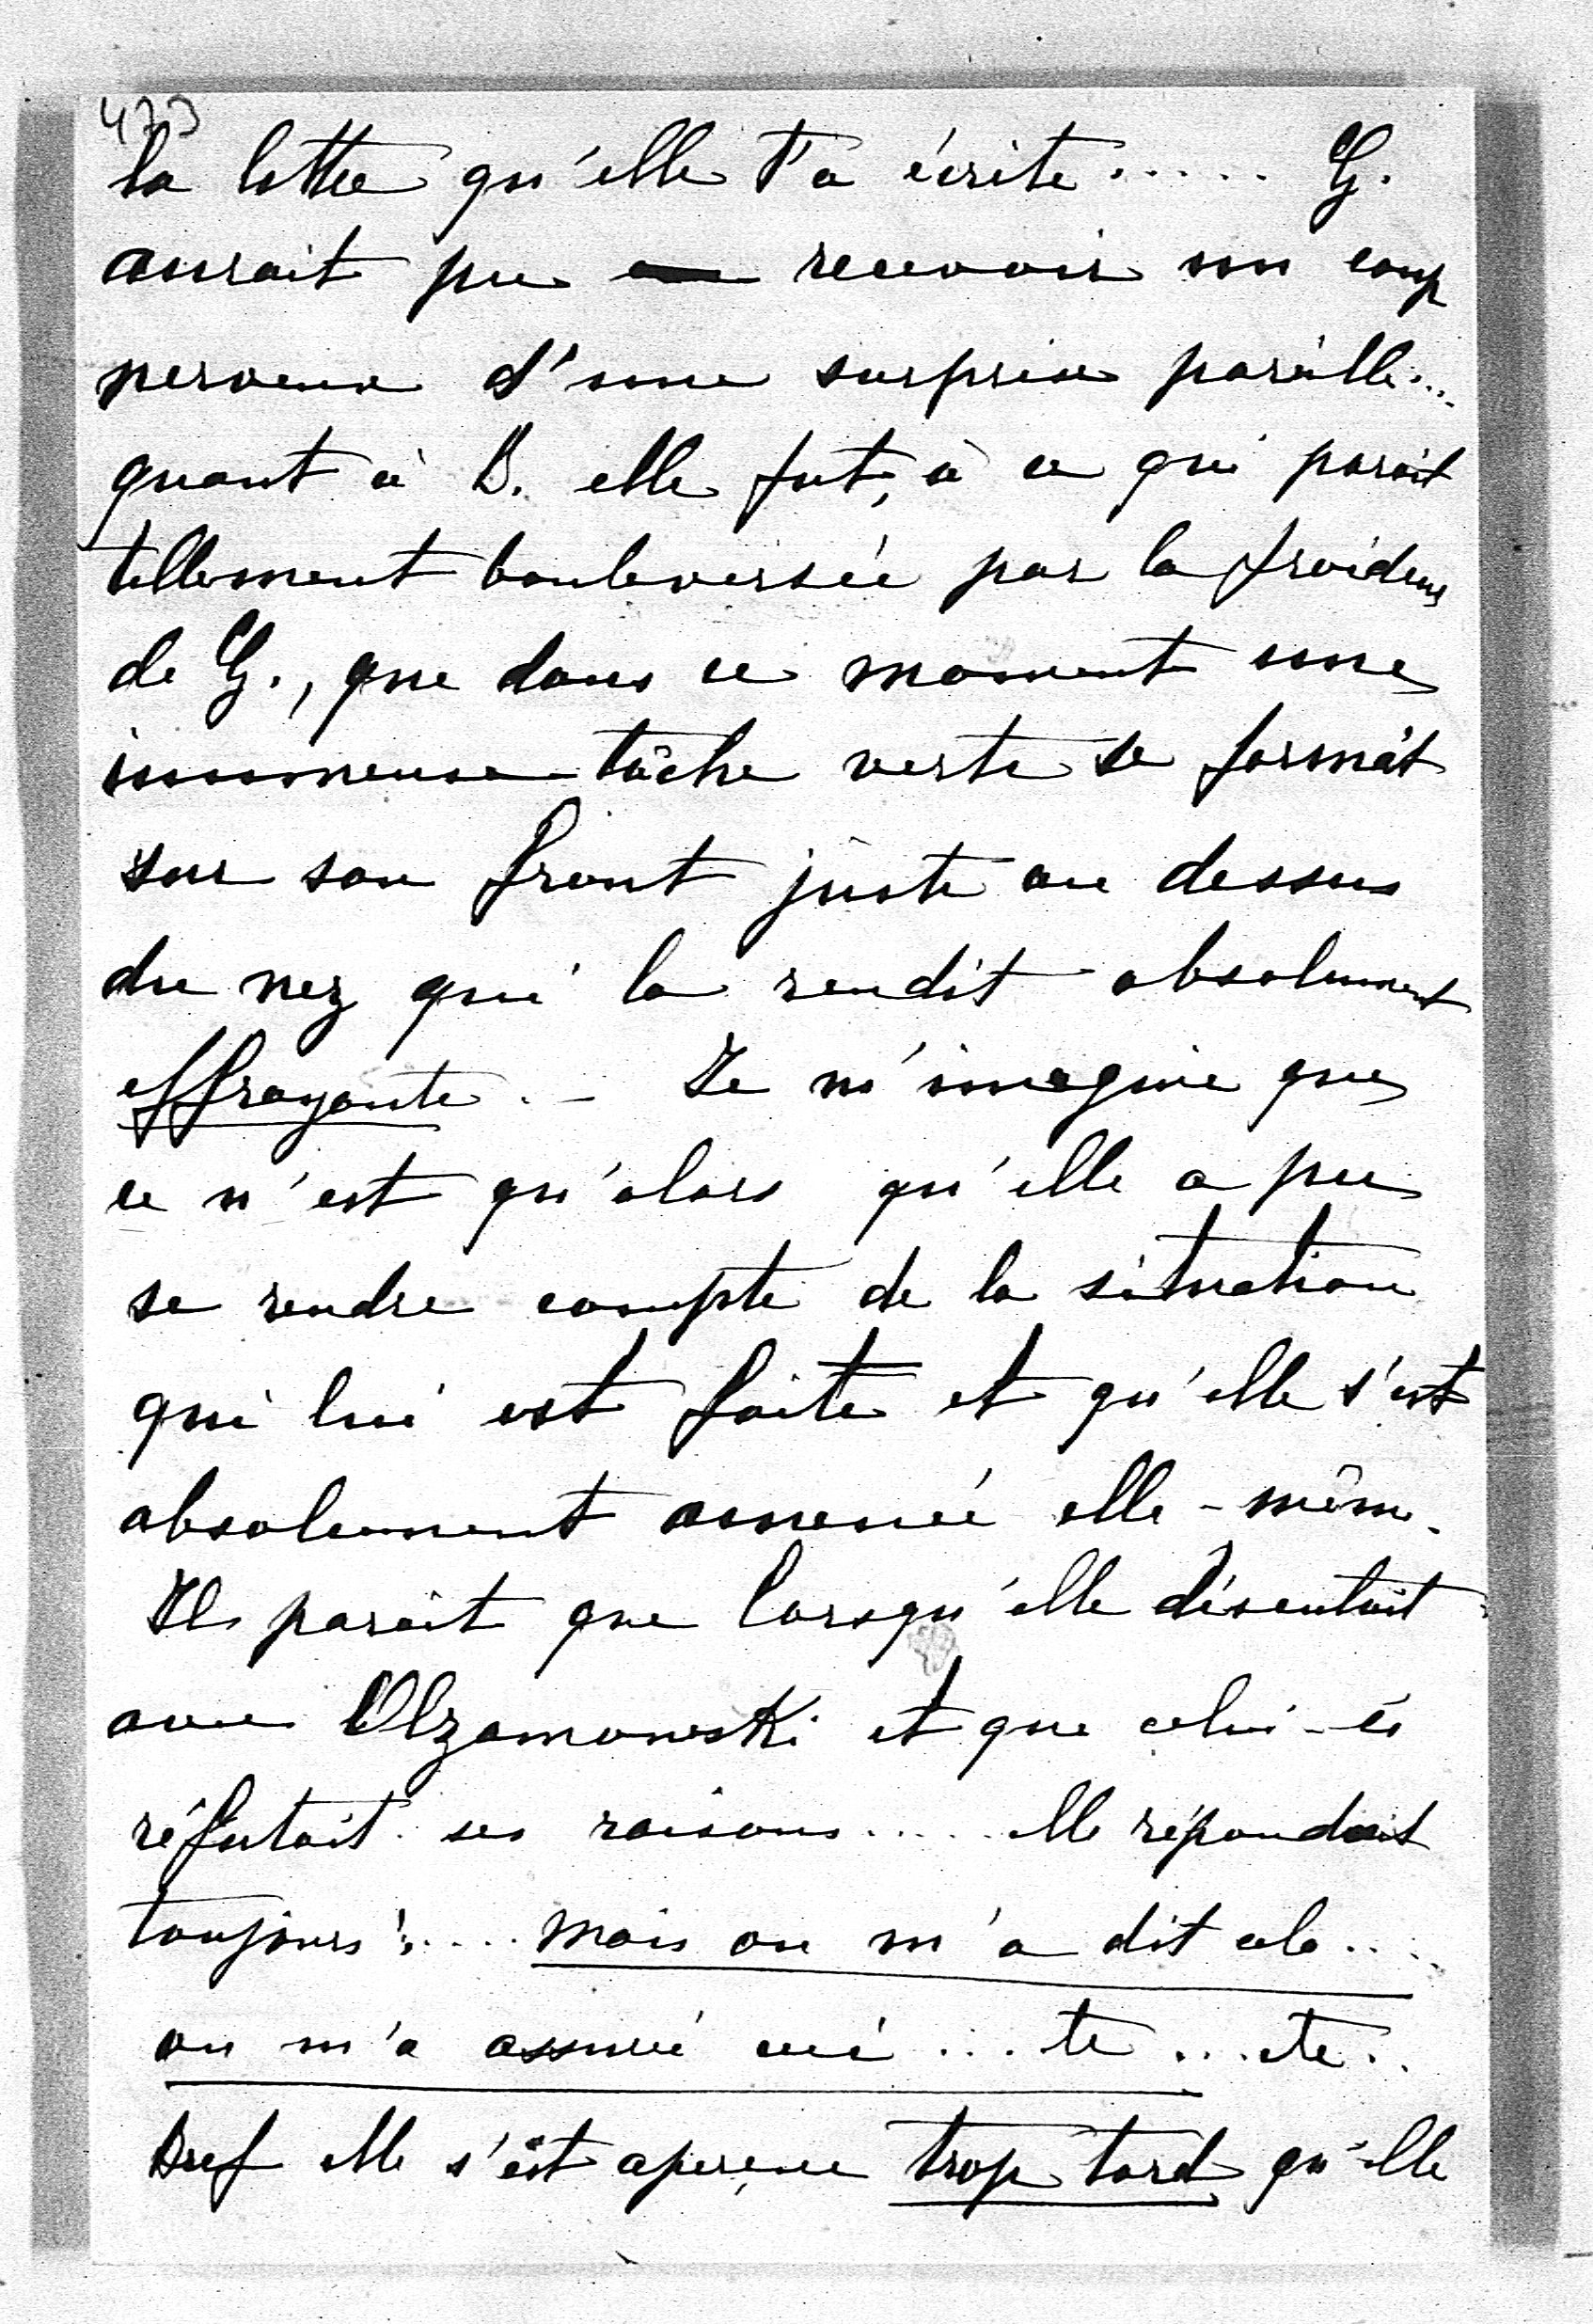 473
la lettre qu'elle t'a écrite..... G.
aurait pu recevoir un coup
nerveux d'une surprise pareille...
quant à B. elle fut, à ce qui parait
tellement bouleversée par la froideur
de G., que dans ce moment une
immense tâche verte se formât
sur son front juste au dessus
du nez qui la rendit absolument
effrayante. – Je m'imagine que
ce n'est qu'alors qu'elle a pu
se rendre compte de la situation
qui lui est faite et qu'elle s'est
absolument amenée elle-même.
Il parait que lorsqu'elle discutait
avec Olzamowski et que celui-ci
réfutait ses raisons..... elle répondait
toujours!..... mais on m'a dit cela....
on m'a assuré ceci ... etc ... etc..
Bref elle s'est aperçue trop tard qu'elle